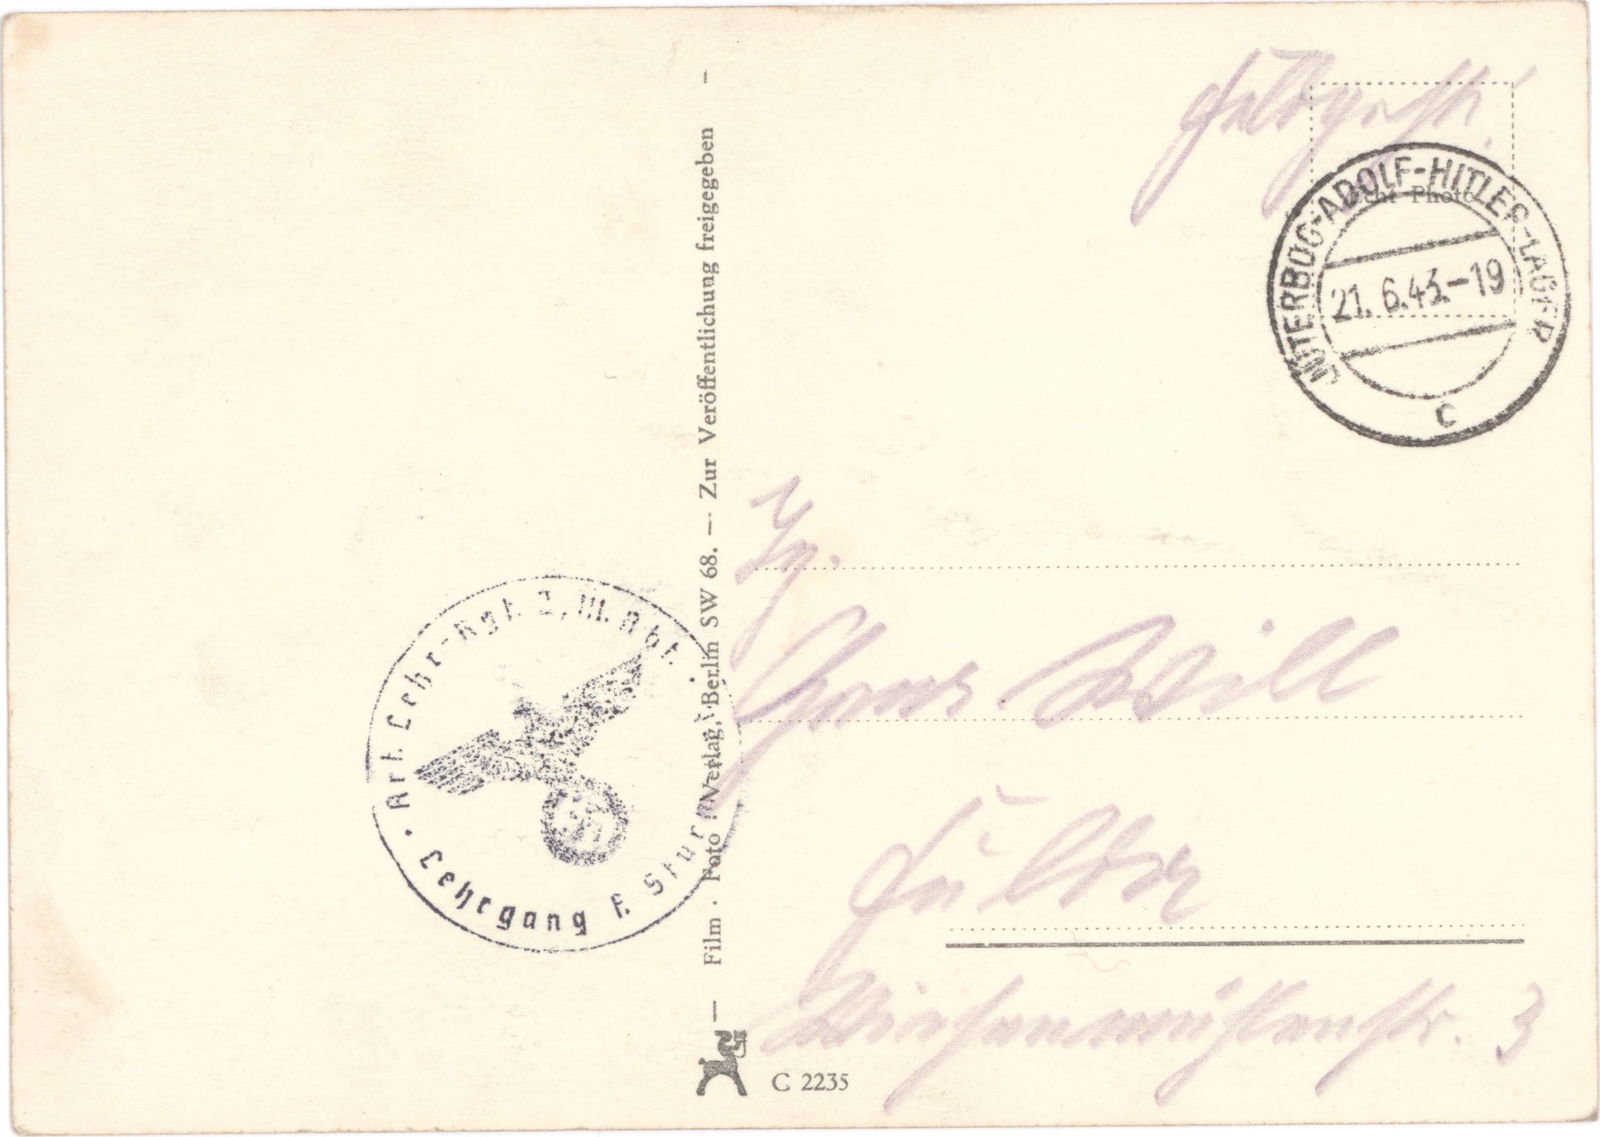 Feldpost!
Echt Photo
JÜTERBOG-ADOLF-HITLER-LAGER
21. 6.43.-19
c
Hans Will
Fulda
Wiesenmühlenstr. 3
Film · Foto · Verlag, Berlin SW 68. — Zur Veröffentlichung freigegeben —
Art. Lehr-Rgt. 2, III. Abt.
Lehrgang f. Stur
C 2235